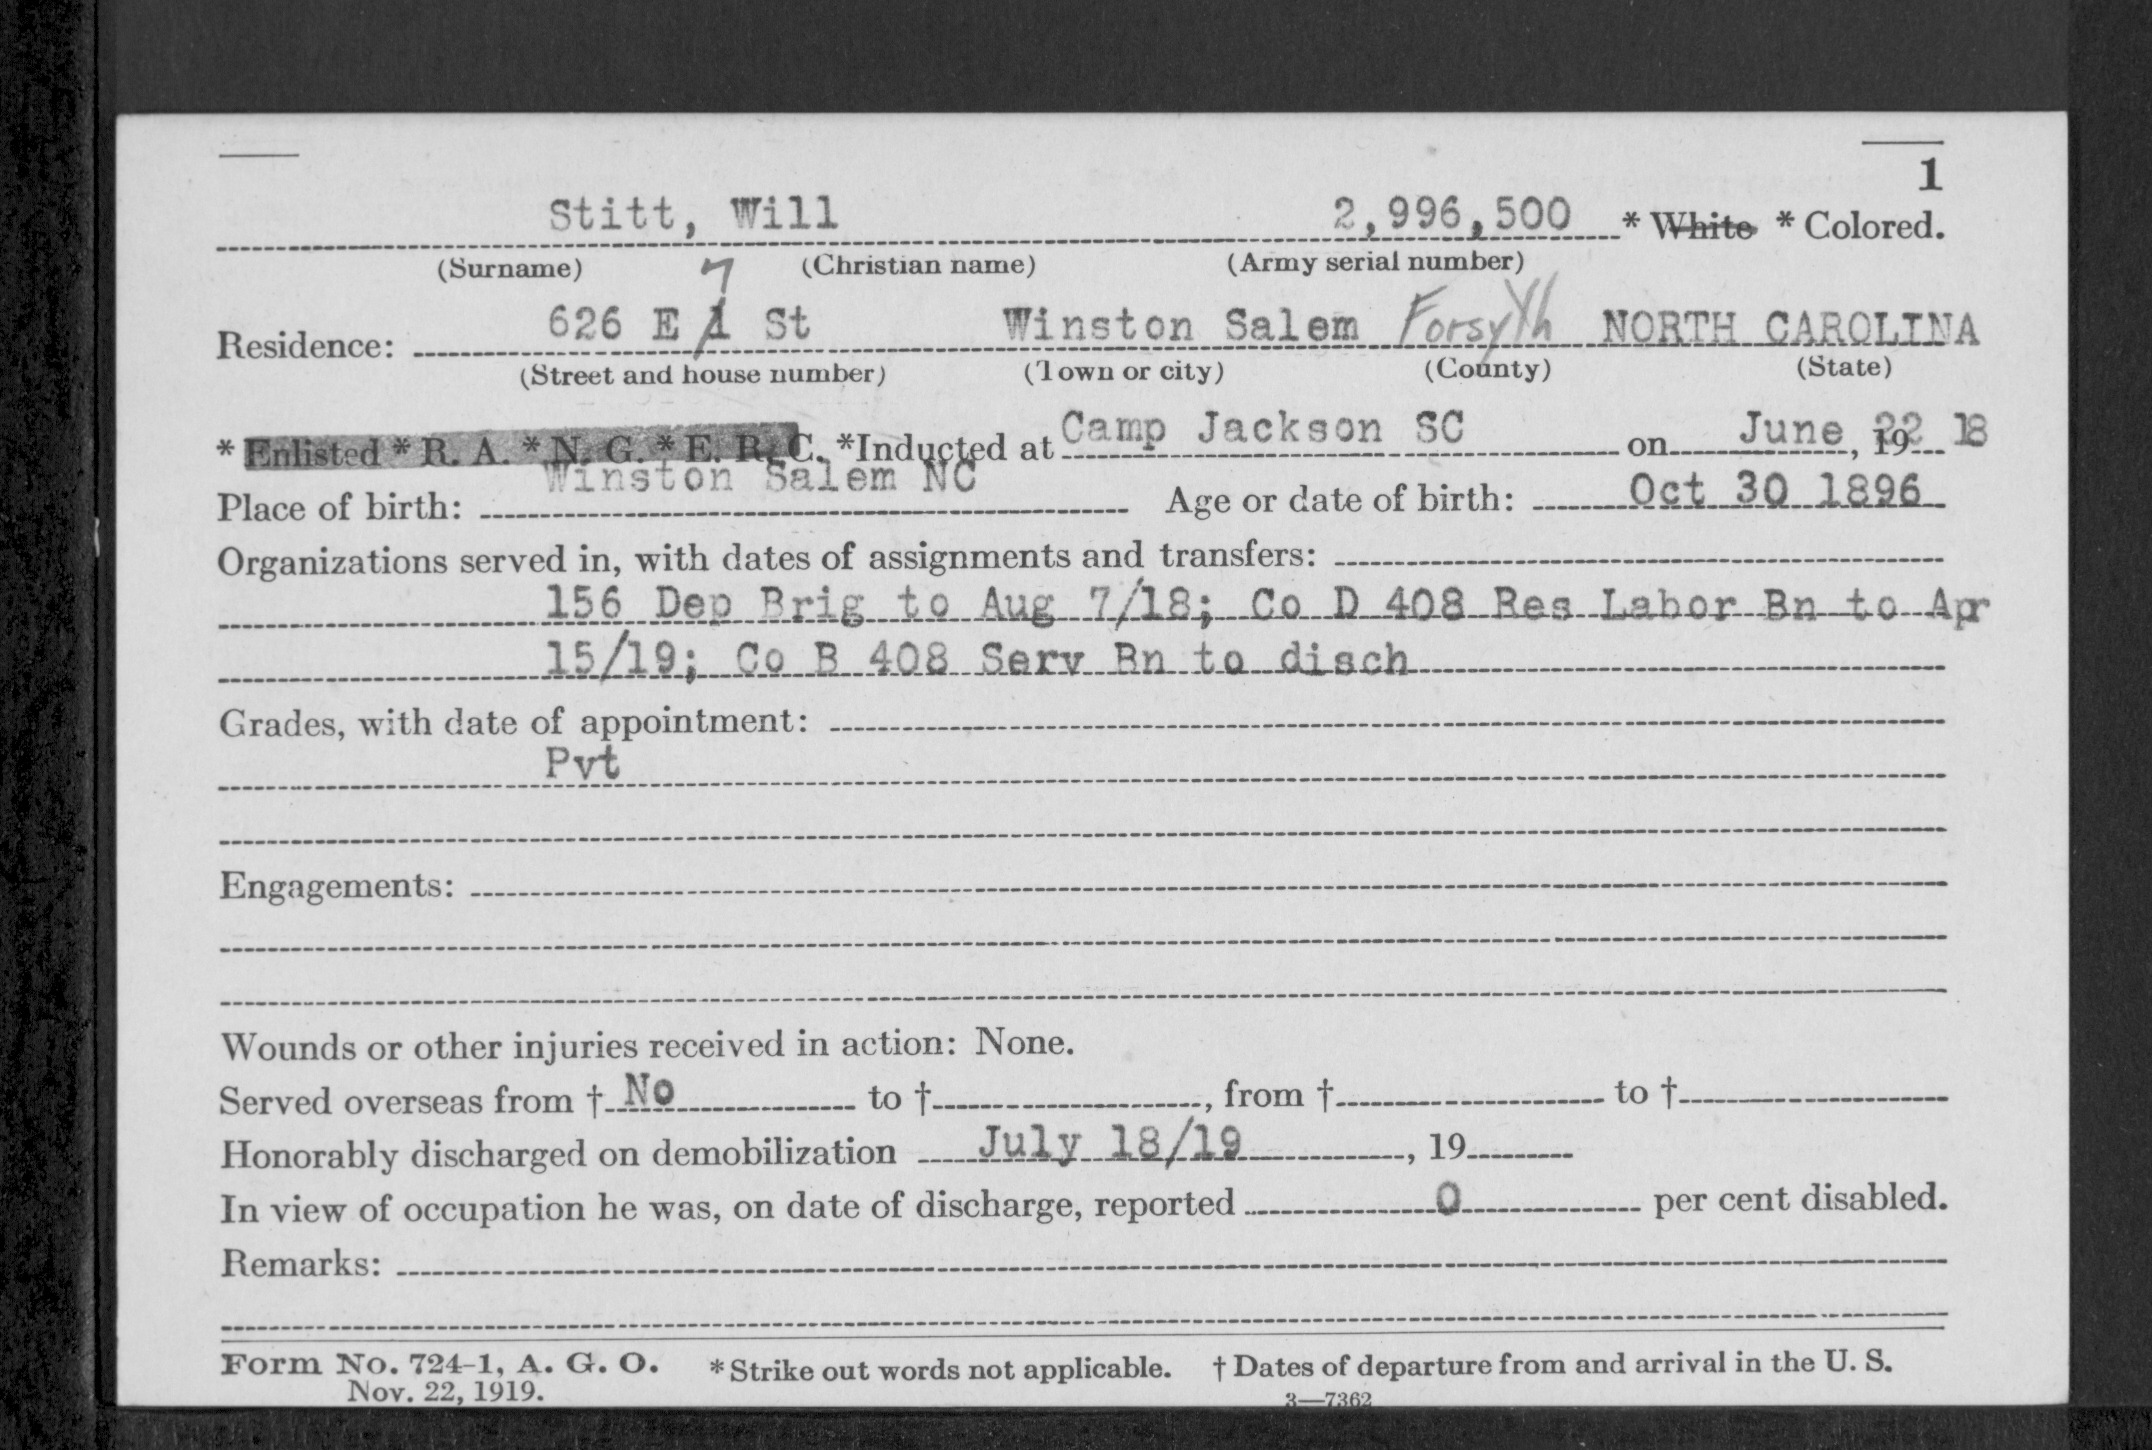 1
Stitt, Will 2,996,500 * White * Colored.
(Surname) (Christian name) (Army serial number)
7
Residence: 626 E 1 St Winston Salem Forsyth NORTH CAROLINA
(Street and house number) (Town or city) (County) (State)
* Enlisted * R. A. * N. G. * E. R. C. *Inducted at Camp Jackson SC on June 22, 19 18
Place of birth: Winston Salem NC Age or date of birth: Oct 30 1896
Organizations served in, with dates of assignments and transfers:
156 Dep Brig to Aug 7/18; Co D 408 Res Labor Bn to Apr
15/19; Co B 408 Serv Bn to disch
Grades, with date of appointment:
Pvt
Engagements:
Wounds or other injuries received in action: None.
Served overseas from † No to † , from † to †
Honorably discharged on demobilization July 18/19 , 19
In view of occupation he was, on date of discharge, reported 0 per cent disabled.
Remarks:
Form No. 724-1, A. G. O. * Strike out words not applicable. † Dates of departure from and arrival in the U. S.
Nov. 22, 1919. 3—7362